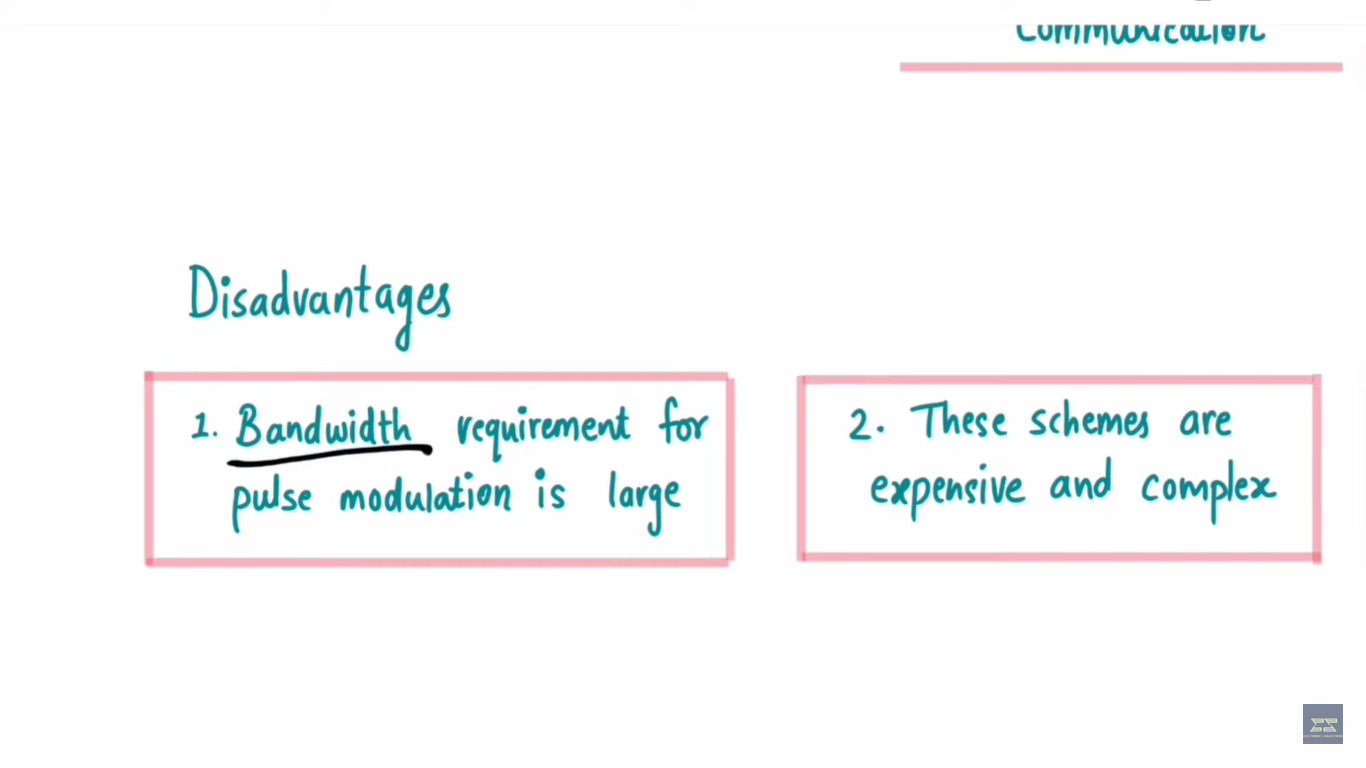 Communication
Disadvantages
1. Bandwidth requirement for
pulse modulation is large
2. These schemes are
expensive and complex